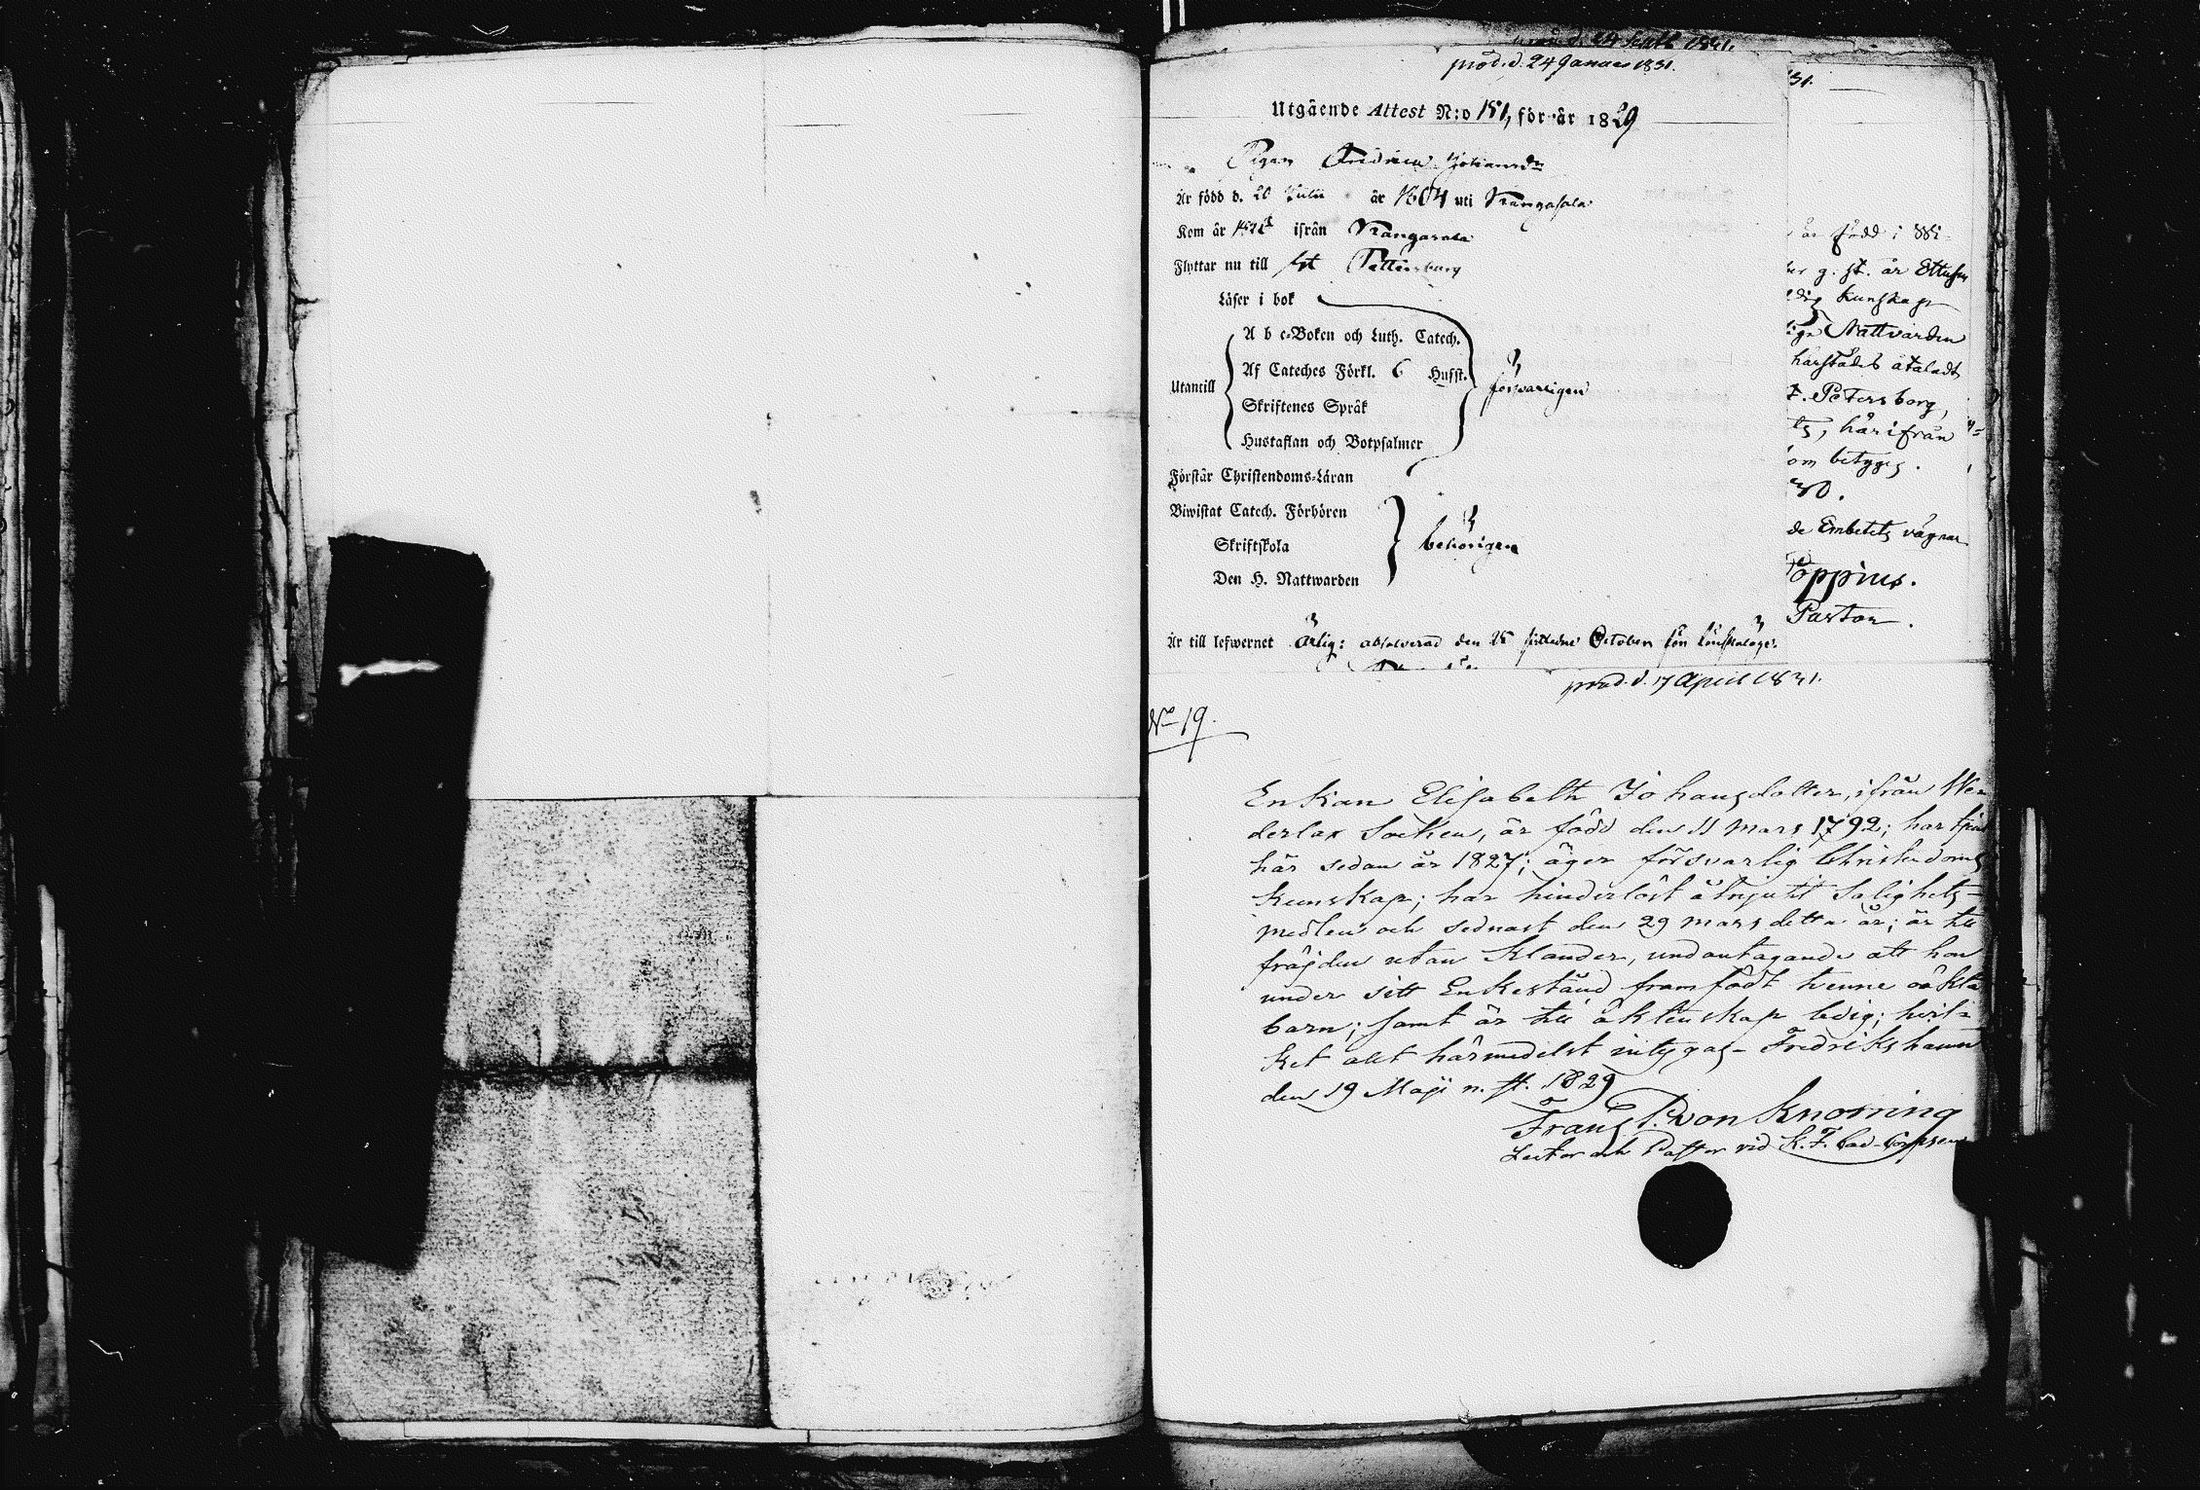 prod. d. 24 Januari 1831.
Utgående Attest N:o 151, för år 1829
Pigan Fredrica Johansdr
Är född d. 20 Julii år 1804 uti Kangasala
Kom år ifrån Kangasala
Flyttar nu till St Pettersburg
Läser i bok
A b c-Boken och Luth. Catech.
Af Cateches Förkl. 6 Hufst.
Utantill
försvarligen
Skriftenes Språk
Hustaflan och Botpsalmer
Förstår Christendoms-Läran
Biwistat Catech. Förhören
Skriftskola
behörigen
Den H. Nattwarden
Är till lefwernet ärlig: absolverad den 25 October för
31.
är född i Wi-
g. st. är
kunskap
Nattvarden
härstädes
t. Petersborg,
härifrån
om betygas.
30.
Embetets vägnar
öppius.
Pastor.
prod. d. 17 April 1831.
No 19.
Enkan Elisabeth Johansdotter, ifrån We-
derlax Socken, är född den 11 Mars 1792; har
här sedan år 1827; äger försvarlig Christendoms
kunskap; har hinderlöst åtnjutit Salighets-
medlen och sednast den 29 Mars detta år; är till
fräjden utan klander, undantagande att hon
under sitt Enkestånd framfödt tvenne oäkta
barn; samt är till äktenskap ledig; hvil-
ket allt härmedelst intygas - Fredrikshamn
den 19 Maji n. st. 1829
Frans P. von Knorring
Lector och Pastor vid K. F. Cad. Corpsen